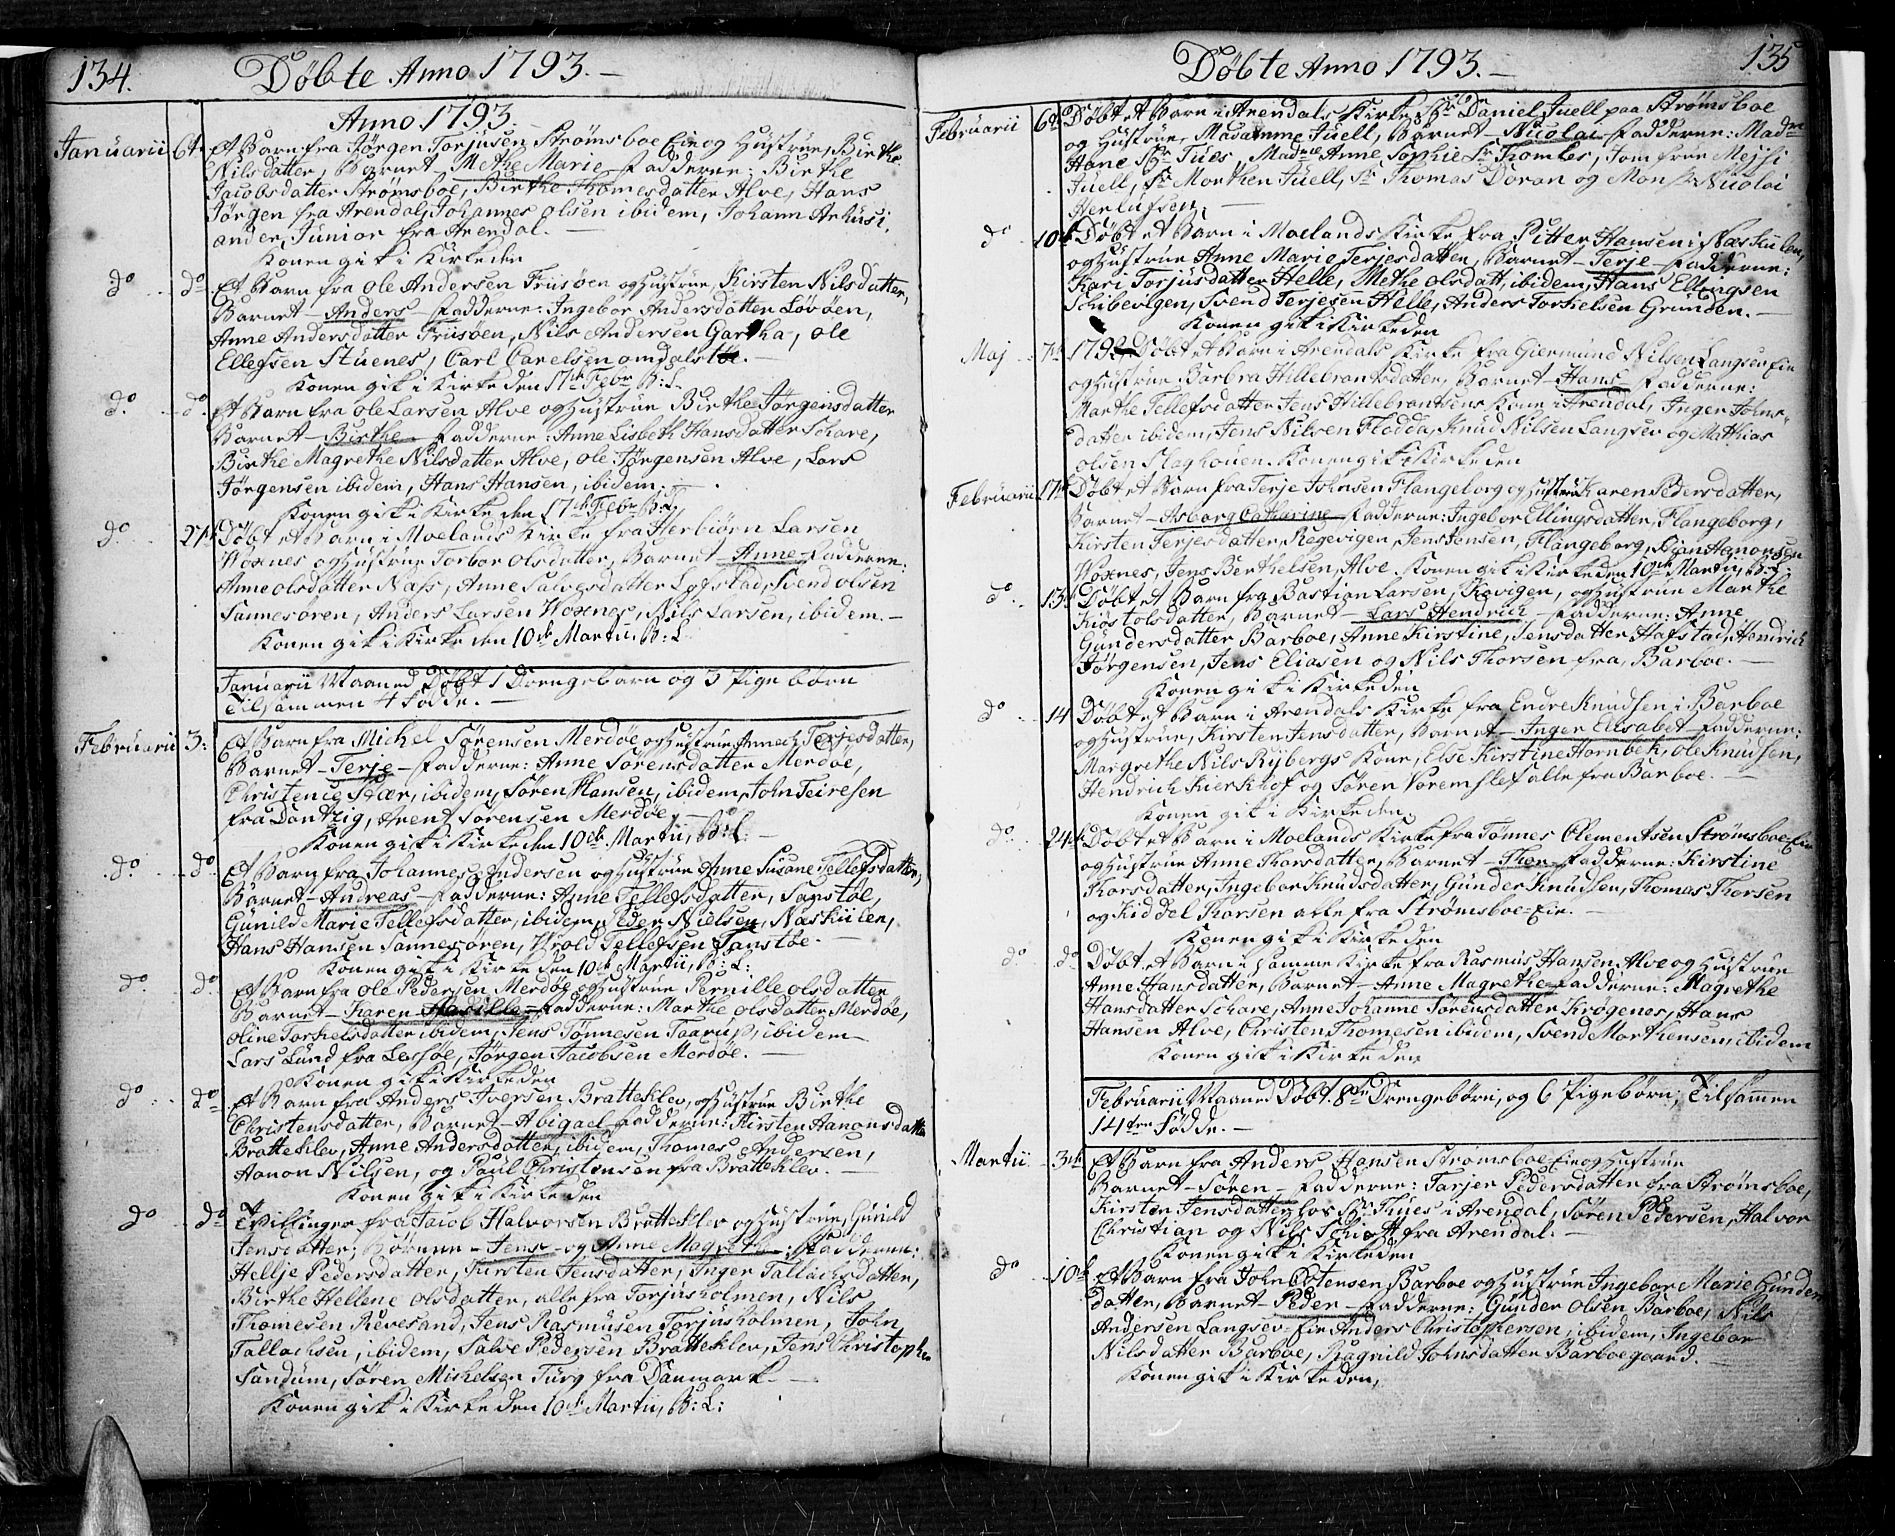 134.
Döbte Anno 1793.
Anno 1793.
Januarii 6te Et Barn fra Jörgen Torjusen Strömsboe Eie og Hustrue, Birthe
Nilsdatter, Barnet Methe Marie Fadderne: Birthe
Jacobsdatter Strömsboe, Birthe Thomesdatter Alve, Hans
Jörgen fra Arendal, Johannes Olsen ibidem, Johann Arhusi
ander, Junior fra Arendal.
Konen gik i Kirke den
do do Et Barn fra Ole Andersen Friisöen og Hustrue, Kirsten Nilsdatter,
Barnet Anders Fadderne: Ingebor Andersdatter Lövöen,
Anne Andersdatter Friisöen, Nils Andersen Gartha, Ole
Ellefsen Stuenes, Carl Carelsen
Konen gik i Kirke den 17de Febr. B:L.
do. do. Et Barn fra Ole Larsen Alve og Hustrue Birthe Jörgensdatter
Barnet Birthe Fadderne: Anne Lisbeth Hansdatter Schare,
Birthe Magrethe Nilsdatter Alve, Ole Jörgensen Alve, Lars
Jörgensen ibidem, Hans Hansen, ibidem.
Konen gik i Kirke den 17de Febr. B:L.
do 27 Döbt et Barn i Moelands Kirke fra Herbiörn Larsen
Woxnes og Hustrue Torbor Olsdatter, Barnet Anne Fadderne:
Anne Olsdatter Næss, Anne Salvesdatter Lofstad, Svend Olsen
Sannesören, Anders Larsen Woxnes, Nils Larsen, ibidem.
Konen gik i Kirke den 10de Martii, B:L
Januarii Maaned Döbt 1 Drengebarn og 3 Pige börn
Tilsammen 4 födde.
Februarii 3: Et Barn fra Michel Sörensen Merdöe og Hustrue Annech Terjesdatter,
Barnet Terje Fadderne: Anne Sörensdatter Merdöe,
Christence ibidem, Sören Hansen, ibidem, John Teiresen
fra Dantzig, Arent Sörensen Merdöe,
Konen gik i Kirke den 10de Martii, B:L:
do do Et Barn fra Johannes Andersen og Hustrue Anne Susane Tellefsdatter,
Barnet Andreas Fadderne: Anne Tellefsdatter, Sanstöe,
Gunild Marie Tellefsdatter, ibidem, Peder Nielsen, Næskiilen,
Hans Hansen Sannesören, Wrold Tellefsen Sanstöe.
Konen gik i Kirke den 10de Martii, B:L:
do do Et Barn fra Ole Pedersen Merdöe og Hustrue Pernille Olsdatter
Barnet Karen Fadderne: Marthe Olsdatter Merdöe,
Oline Torkelsdatter ibidem, Jens Tönnesen Taarup, ibidem
Lars Lund fra Lessöe, Jörgen Jacobsen Merdöe.
Konen gik i Kirke den
do do Et Barn fra Anders Iversen Bratteklev, og Hustrue Birthe
Christensdatter, Barnet Abigael Fadderne: Kirsten Aanonsdatter
Bratteklev, Anne Andersdatter, ibidem, Thomes Andersen,
Aanon Nilsen, og Poul Christensen fra Bratteklev.
Konen gik i Kirke den
do do Tvillinger fra Jacob Halvorsen Bratteklev og Hustrue, Gunild
Jensdatter; Börnene Jens og Anne Magrethe; Fadderne:
Hellje Pedersdatter, Kirsten Jensdatter, Inger Tallachsdatter,
Birthe Hellene Olsdatter, alle fra Torjusholmen, Nils
Thomesen Revesand, Jens Rasmusen Torjusholmen, John
Tallachsen, ibidem, Salve Pedersen Bratteklev, Jens Christopher
Sandum, Sören Michelsen Fury fra Danmark.
Konen gik i Kirke den 10de Martii, B:L:
135
Döbte Anno 1793.
Februarii 6te Döbt et Barn i Arendals Kirke, Sr. Daniel Juell paa Strömsboe
og Hustrue, Madamme Juell, Barnet Nicolai Fadderne: Madme
Hane Sr. Tues, Madme Anne Sophie Sr. Thomles, Jomfrue Mejsi
Juell, Sr. Morthen Juell, Sr. Thomas Doran og Monsr. Nicolai
Herlufsen.
do 10de Döbt et Barn i Moelands Kirke fra Pitter Hansen i Næskiilen,
og Hustrue Anne Marie Terjesdatter, Barnet Terje Fadderne:
Kari Torjusdatter Helle, Methe Olsdatt, ibidem, Hans Ellingsen
Schibevigen, Svend Terjesen Helle, Anders Torkelsen Grunden.
Konen gik i Kirke den
Maj 7de 1792 Döbt et Barn i Arendals Kirke fra Giermund Nilsen Langsev Eie
og Hustrue, Barbra Hillebrantsdatter, Barnet Hans Fadderne:
Marthe Tellefsdatter Jens Hillebrantsens Kone i Arendal, Inger Johns
datter ibidem, Jens Nilsen Flodda, Knud Nilsen Langsev og Mathias
Olsen Slaghouen. Konen gik i Kirke den
Februarii 17de Döbt et Barn fra Terje Johnsen Flangeborg og Hustrue Karen Pedersdatter,
Barnet Asborg Catharine Fadderne: Ingebor Ellingsdatter, Flangeborg,
Kirsten Terjesdatter, Regevigen, Jens Jensen, Flangeborg, Aanonsen
Woxnes, Jens Berthelsen, Alve. Konen gik i Kirke den 10de Martii, B:L:
do. 13 Döbt et Barn fra Bastian Larsen, Kovigen, og Hustrue Marthe
Kiöstolsdatter, Barnet Lars Hendrich Fadderne: Anne
Gundersdatter Barboe, Anne Kirstine, Jensdatter Hafstad, Hendrich
Jörgensen, Jens Eliasen og Nils Thorsen fra, Barboe.
Konen gik i Kirke den
do 14 Döbt et Barn i Arendals Kirke fra Endre Knudsen i Barboe
og Hustrue, Kirsten Jensdatter, Barnet Inger Elisabet Fadderne:
Margrethe Nils Rybergs Kone, Else Kirstine Hornbek, Ole Knudsen,
Hendrich Kierkhof og Sören Voremslef alle fra Barboe.
Konen gik i Kirke den
do. 24de Döbt et Barn i Moelands Kirke fra Tönnes Clementsen Strömsboe Eie
og Hustrue Anne Thorsdatter, Barnet Thor Fadderne: Kirstine
Thorsdatter, Ingebor Knudsdatter, Gunder Knudsen, Thomas Thorsen
og Kiddel Thorsen alle fra Strömsboe Eie.
Konen gik i Kirke den
do. do Döbt et Barn i samme Kirke fra Rasmus Hansen Alve og Hustrue
Anne Hansdatter, Barnet Anne Magrethe Fadderne: Magrethe
Hansdatter Schare, Anne Johanne Sörensdatter Krögenes, Hans
Hansen Alve, Christen Thomesen ibidem, Svend Morthensen, ibidem
Konen gik i Kirke den
Februarii Maaned Döbt 8te Drengebörn, og 6 Pigebörn, Tilsammen
14ten födde.
Martii 3de Et Barn fra Anders Hansen Strömsboe Eie og Hustrue
Barnet Sören Fadderne: Tarjer Pedersdatter fra Strömsboe,
Kirsten Jensdatter hos Sr. Tues i Arendal, Sören Pedersen, Halvor
Christian og Nils Schiött fra Arendal.
Konen gik i Kirke den
do 10de Et Barn fra John Ostensen Barboe og Hustrue Ingebor Marie Gunders
datter, Barnet Peder Fadderne: Gunder Olsen Barboe, Nils
Andersen Langsev Eie Anders Christophersen, ibidem, Ingebor
Nilsdatter Barboe, Ragnild Johnsdatter Barboegaard.
Konen gik i Kirke den,